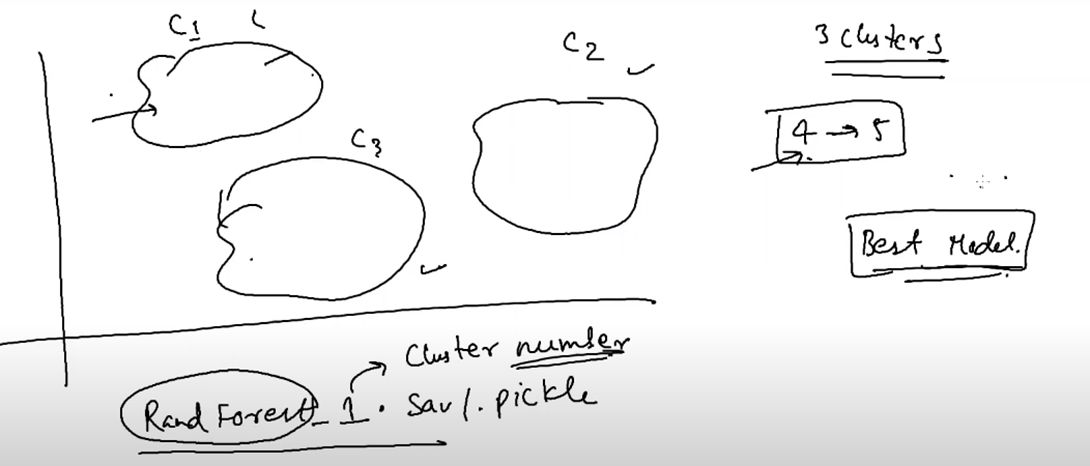 C1
C2
3 clusters
C3
4 → 5
Best Model.
Cluster number
Rand Forest_1. sav/. pickle